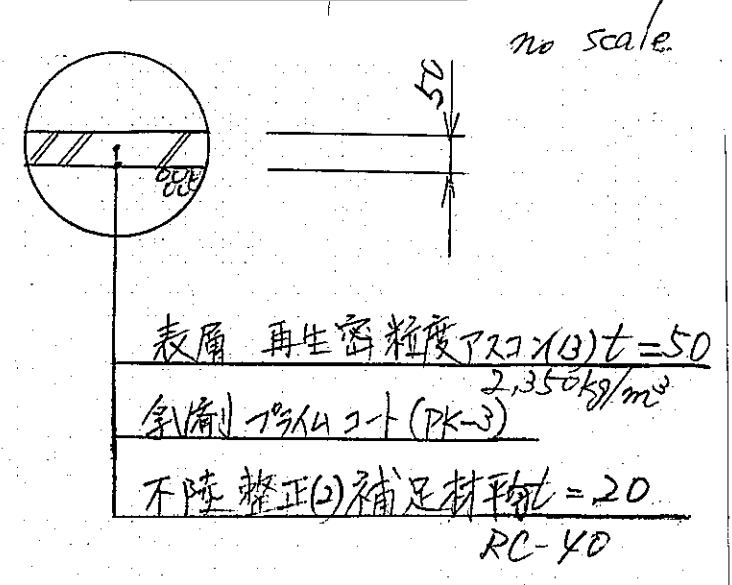 no scale
50
表層 再生密粒度アスコン(13) t=50
2,350kg/m³
乳剤 プライムコート(PK-3)
不陸整正(2)補足材平均t=20
RC-40